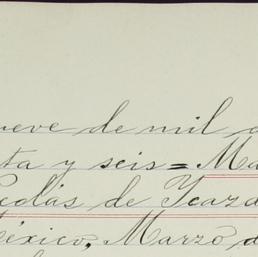 ueve de mil o
ta y seis = Ma
icolás de Ycaza
éxico, Marzo d